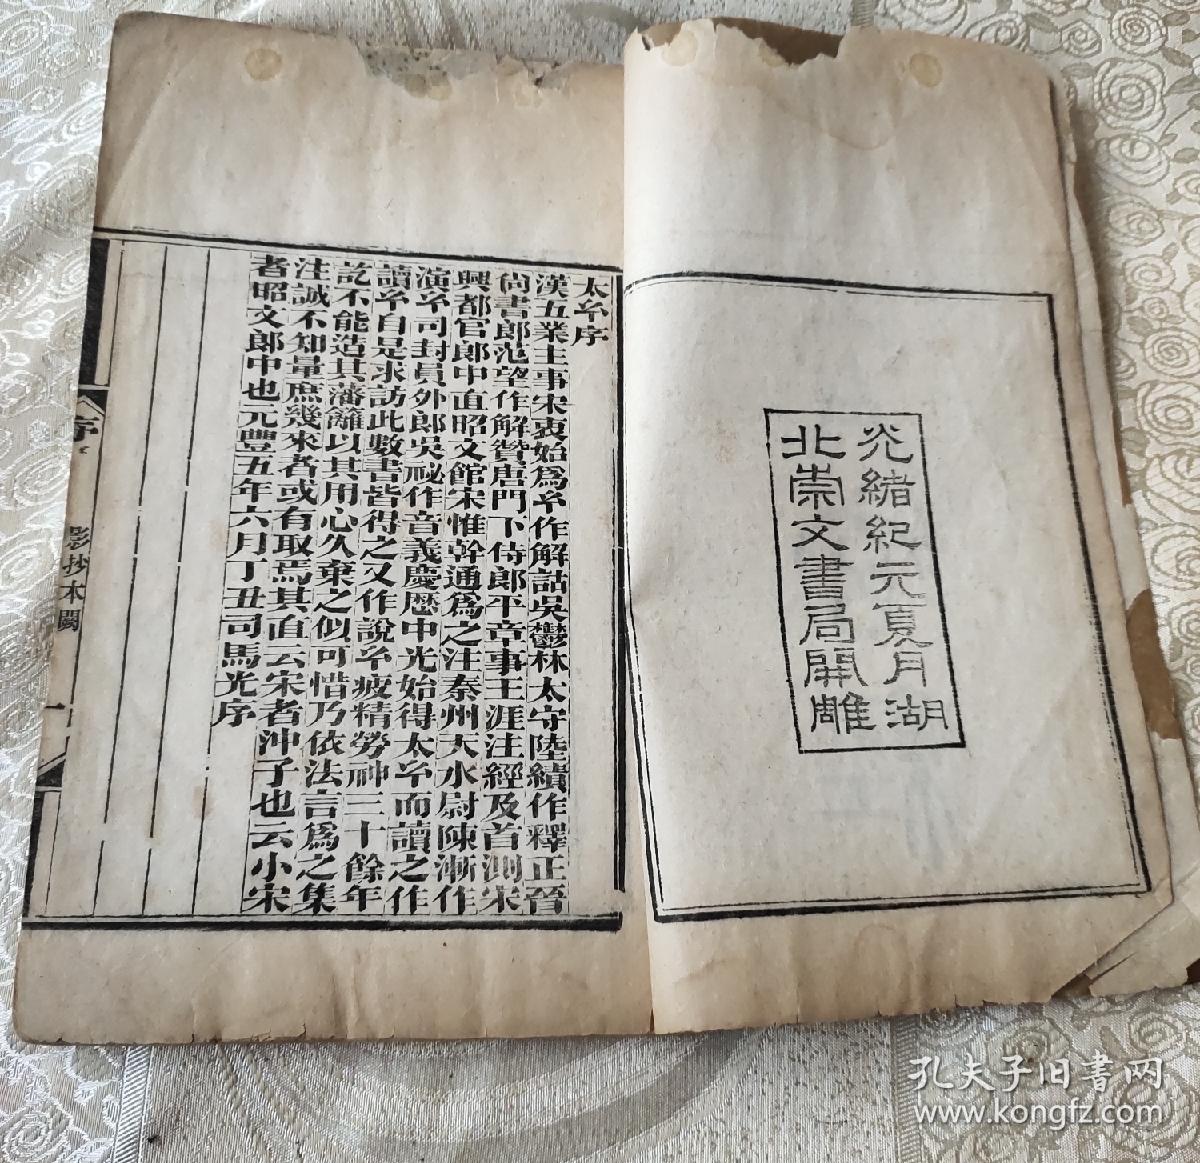 光緒紀元夏月湖
北崇文書局開雕
太𤣥序
漢五業主事宋衷始爲𤣥作解詁吳鬱林太守陸績作釋正晉
尚書郎范望作解贊唐門下侍郎平章事王涯注經及首測宋
興都官郎中直昭文館宋惟幹通爲之注秦州天水尉陳漸作
演𤣥司封員外郎吳祕作音義慶厯中光始得太𤣥而讀之作
讀𤣥自是求訪此數書皆得之又作說𤣥疲精勞神三十餘年
訖不能造其藩籬以其用心久棄之似可惜乃依法言爲之集
注誠不知量庶幾來者或有取焉其直云宋者沖子也云小宋
者昭文郎中也元豐五年六月丁丑司馬光序
序
影抄本闕
一
孔夫子旧書网
www.kongfz.com